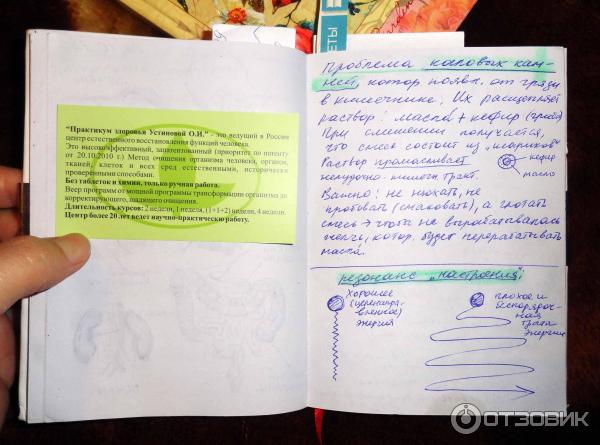 ЕТЫ
"Практикум здоровья Устиновой О.И." - это ведущий в России
центр естественного восстановления функций человека.
Это высокоэффективный, запатентованный (приоритет по патенту
от 20.10.2010 г.) Метод очищения организма человека, органов,
тканей, клеток и всех сред естественными, исторически
проверенными способами.
Без таблеток и химии, только ручная работа.
Веер программ от мощной программы трансформации организма до
корректирующего, щадящего очищения.
Длительность курсов: 2 недели, 1 неделя, (1+1+2) недели, 4 недели.
Центр более 20 лет ведет научно-практическую работу.
Проблема каловых кам-
ней, котор. появл. от грязи
в кишечнике. Их расщепляет
раствор: масла + кефир
При смешении получается,
что смесь состоит из „шариков"
Раствор промасливает
кефир
желудочно-кишеч. тракт.
масло
Важно: не нюхать, не
пробовать (смаковать), а глотать
смесь → чтобы не вырабатывалась
желчь, котор. будет перерабатывать
масла.
резонанс „настроения"
Хорошее
(целенапра-
вленное)
энергия
плохое и
беспорядоч-
ная
трата
энергии
ОТЗОВИК